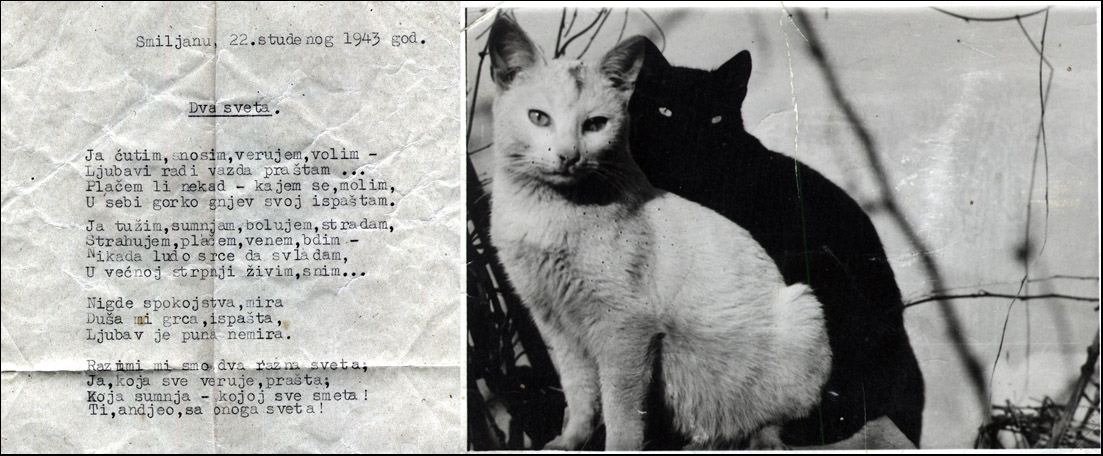 Smiljanu, 22.studenog 1943 god.
Dva sveta.
Ja ćutim,snosim,verujem,volim -
Ljubavi radi vazda praštam ...
Plačem li nekad - kajem se,molim,
U sebi gorko gnjev svoj ispaštam.
Ja tužim,sumnjam,bolujem,stradam,
Strahujem,plačem,venem,bdim -
Nikada ludo srce da svladam,
U večnoj strpnji živim,snim...
Nigde spokojstva,mira
Duša mi grca,ispašta,
Ljubav je puna nemira.
Razumi mi smo dva razna sveta;
Ja,koja sve veruje,prašta;
Koja sumnja - kojoj sve smeta!
Ti,andjeo,sa onoga sveta!